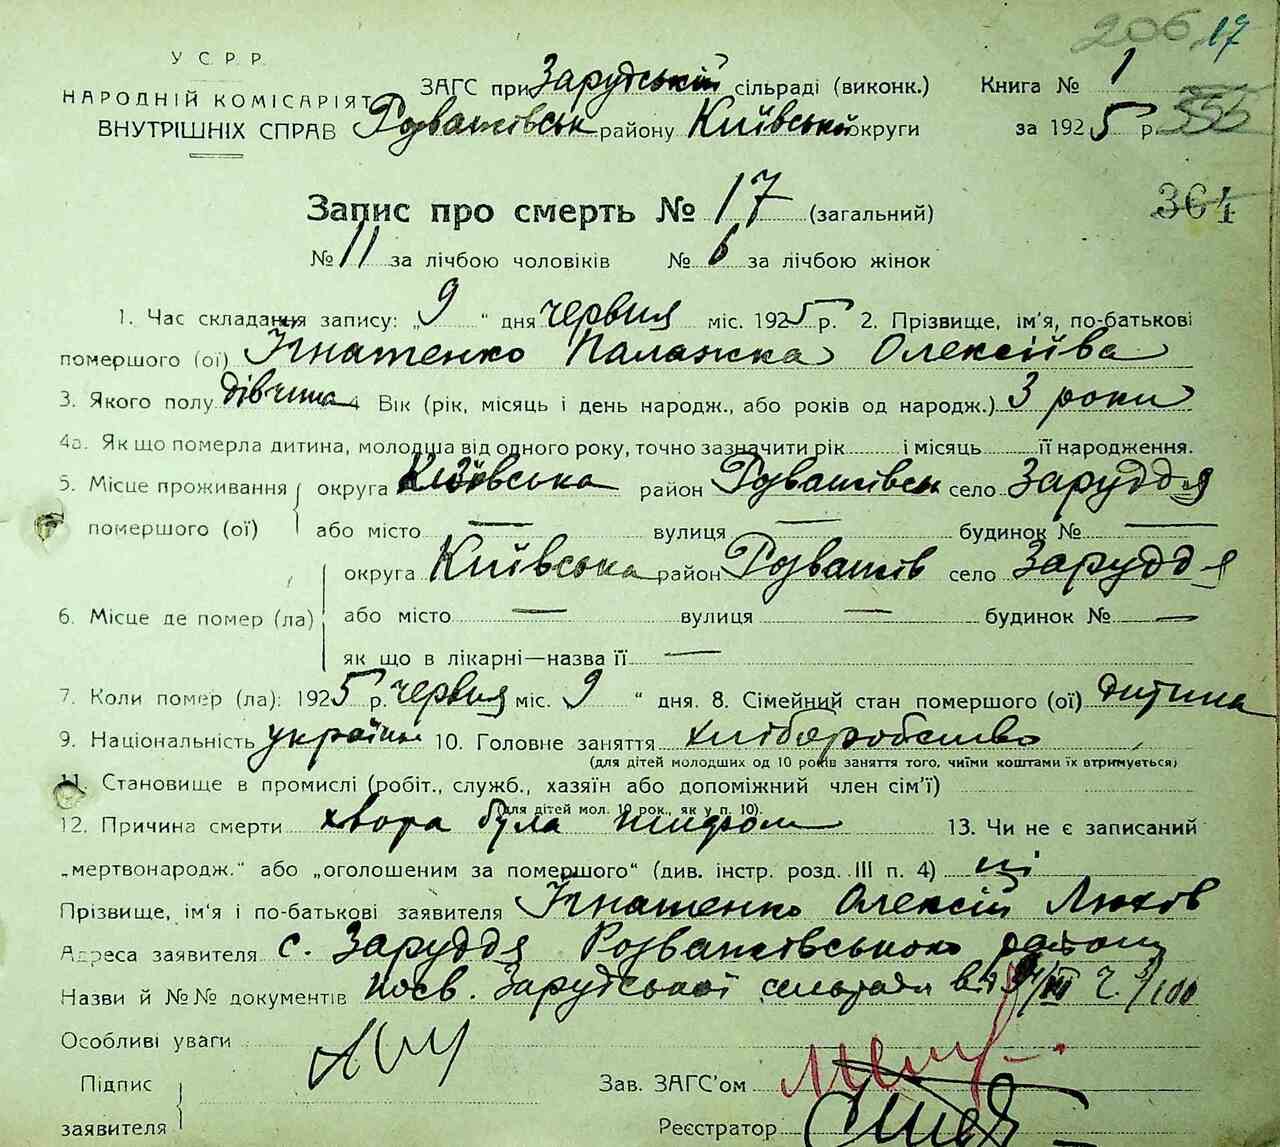 206 17
У С. Р. Р.
НАРОДНІЙ КОМІСАРІЯТ
ВНУТРІШНІХ СПРАВ
ЗАГС при Зарудській сільраді (виконк.)
Розважівськ району Київської округи
Книга № 1
за 1925 р.
355
364
Запис про смерть № 17 (загальний)
№ 11 за лічбою чоловіків № 6 за лічбою жінок
1. Час складання запису: „9“ дня червня міс. 1925 р. 2. Прізвище, ім'я, по-батькові
помершого (ої) Ігнатенко Палажка Олексіїва
3. Якого полу дівчина 4 Вік (рік, місяць і день народж., або років од народж.) 3 роки
4а. Як що померла дитина, молодша від одного року, точно зазначити рік і місяць її народження.
5. Місце проживання округа Київська район Розважівськ село Заруддя
помершого (ої) або місто — вулиця — будинок № —
округа Київська район Розважів село Заруддя
6. Місце де помер (ла) або місто — вулиця — будинок № —
як що в лікарні—назва її —
7. Коли помер (ла): 1925 р. червня міс. 9 “ дня. 8. Сімейний стан помершого (ої) дитина
9. Національність українк 10. Головне заняття хліборобство
(для дітей молодших од 10 років заняття того, чиїми коштами їх втримується)
11. Становище в промислі (робіт., служб., хазяїн або допоміжний член сім'ї)
(для дітей мол. 10 рок., як у п. 10).
12. Причина смерти хвора була тифом 13. Чи не є записаний
„мертвонародж.“ або „оголошеним за помершого“ (див. інстр. розд. III п. 4) ні
Прізвище, ім'я і по-батькові заявителя Ігнатенко Олексій
Адреса заявителя с. Заруддя Розважівського району
Назви й №№ документів посв. Зарудської сільради
Особливі уваги
Підпис
заявителя
Зав. ЗАГС'ом
Реєстратор